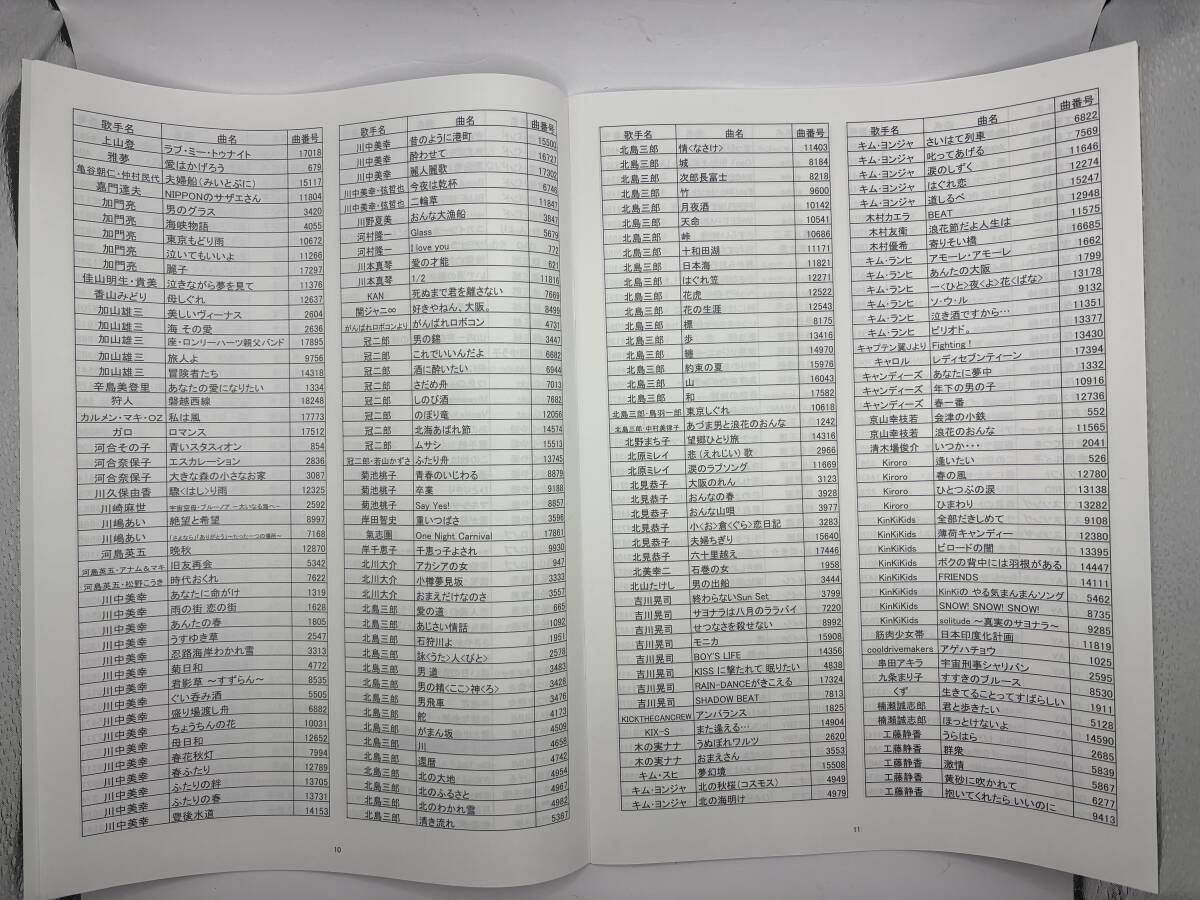 歌手名 曲名 曲番号
上山登 ラブ・ミー・トゥナイト 17018
雅夢 愛はかげろう 679
亀谷朝仁・仲村民代 夫婦船〈みいとぶに〉 15117
嘉門達夫 NIPPONのサザエさん 11804
加門亮 男のグラス 3420
加門亮 海峡物語 4055
加門亮 東京もどり雨 10672
加門亮 泣いてもいいよ 11266
加門亮 麗子 17297
佳山明生・貴美 泣きながら夢を見て 11376
香山みどり 母しぐれ 12637
加山雄三 美しいヴィーナス 2604
加山雄三 海 その愛 2636
加山雄三 座・ロンリーハーツ親父バンド 17895
加山雄三 旅人よ 9756
加山雄三 冒険者たち 14318
辛島美登里 あなたの愛になりたい 1334
狩人 磐越西線 18248
カルメン・マキ・OZ 私は風 17773
ガロ ロマンス 17512
河合その子 青いスタスィオン 854
河合奈保子 エスカレーション 2836
河合奈保子 大きな森の小さなお家 3087
川久保由香 驟〈はし〉り雨 12325
川崎麻世 宇宙空母・ブルーノア ～大いなる海へ～ 2592
川嶋あい 絶望と希望 8997
川嶋あい 「さよなら」「ありがとう」～たった一つの場所～ 7168
河島英五 晩秋 12870
河島英五・アナム&マキ 旧友再会 5342
河島英五・松野こうき 時代おくれ 7622
川中美幸 あなたに命がけ 1319
川中美幸 雨の街 恋の街 1628
川中美幸 あんたの春 1805
川中美幸 うすゆき草 2547
川中美幸 忍路海岸わかれ雪 3313
川中美幸 菊日和 4772
川中美幸 君影草 ～すずらん～ 8535
川中美幸 ぐい呑み酒 5505
川中美幸 盛り場渡し舟 6882
川中美幸 ちょうちんの花 10031
川中美幸 母日和 12652
川中美幸 春花秋灯 7994
川中美幸 春ふたり 12789
川中美幸 ふたりの絆 13705
川中美幸 ふたりの春 13731
川中美幸 豊後水道 14153
10
歌手名 曲名 曲番号
川中美幸 昔のように港町 15500
川中美幸 酔わせて 16727
川中美幸 麗人麗歌 17302
川中美幸・弦哲也 今夜は乾杯 6746
川中美幸・弦哲也 二輪草 11847
川野夏美 おんな大漁船 3847
河村隆一 Glass 5679
河村隆一 I love you 772
川本真琴 愛の才能 621
川本真琴 1/2 11816
KAN 死ぬまで君を離さない 7669
関ジャニ∞ 好きやねん、大阪。 8499
がんばれロボコンより がんばれロボコン 4731
冠二郎 男の錦 3447
冠二郎 これでいいんだよ 6682
冠二郎 酒に酔いたい 6944
冠二郎 さだめ舟 7013
冠二郎 しのび酒 7682
冠二郎 のぼり竜 12056
冠二郎 北海あばれ節 14574
冠二郎 ムサシ 15513
冠二郎・若山かずさ ふたり舟 13745
菊池桃子 青春のいじわる 8879
菊池桃子 卒業 9188
菊池桃子 Say Yes! 8857
岸田智史 重いつばさ 3596
氣志團 One Night Carnival 17861
岸千恵子 千恵っ子よされ 9930
北川大介 アカシアの女 947
北川大介 小樽夢見坂 3333
北川大介 おまえだけなのさ 3557
北島三郎 愛の道 685
北島三郎 あじさい情話 1092
北島三郎 石狩川よ 1951
北島三郎 詠<うた>人<びと> 2578
北島三郎 男 道 3483
北島三郎 男の精<ここ>神<ろ> 3428
北島三郎 男飛車 3476
北島三郎 舵 4173
北島三郎 がまん坂 4509
北島三郎 川 4658
北島三郎 還暦 4742
北島三郎 北の大地 4954
北島三郎 北のふるさと 4967
北島三郎 北のわかれ雪 4982
北島三郎 清き流れ 5387
歌手名 曲名 曲番号
北島三郎 情<なさけ> 11403
北島三郎 城 8184
北島三郎 次郎長富士 8218
北島三郎 竹 9600
北島三郎 月夜酒 10142
北島三郎 天命 10541
北島三郎 峠 10686
北島三郎 十和田湖 11171
北島三郎 日本海 11821
北島三郎 はぐれ笠 12271
北島三郎 花虎 12522
北島三郎 花の生涯 12543
北島三郎 標 8175
北島三郎 歩 13416
北島三郎 纏 14970
北島三郎 約束の夏 15976
北島三郎 山 16043
北島三郎 和 17582
北島三郎・鳥羽一郎 東京しぐれ 10618
北島三郎・中村美律子 あづま男と浪花のおんな 1242
北野まち子 望郷ひとり旅 14316
北原ミレイ 悲〈えれじい〉歌 2966
北原ミレイ 涙のラブソング 11669
北見恭子 大阪のれん 3123
北見恭子 おんなの春 3928
北見恭子 おんな山唄 3977
北見恭子 小<お>倉<ぐら>恋日記 3283
北見恭子 夫婦ちぎり 15640
北見恭子 六十里越え 17446
北美幸二 石巻の女 1958
北山たけし 男の出船 3444
吉川晃司 終わらないSun Set 3799
吉川晃司 サヨナラは八月のララバイ 7220
吉川晃司 せつなさを殺せない 8992
吉川晃司 モニカ 15908
吉川晃司 BOY'S LIFE 14356
吉川晃司 KISS に撃たれて 眠りたい 4838
吉川晃司 RAIN-DANCEがきこえる 17324
吉川晃司 SHADOW BEAT 7813
KICKTHECANCREW アンバランス 1825
KIX-S また逢える… 14904
木の実ナナ うぬぼれワルツ 2620
木の実ナナ おまえさん 3553
キム・スヒ 夢幻境 15508
キム・ヨンジャ 北の秋桜(コスモス) 4949
キム・ヨンジャ 北の海明け 4979
歌手名 曲名 曲番号
キム・ヨンジャ さいはて列車 6822
キム・ヨンジャ 叱ってあげる 7569
キム・ヨンジャ 涙のしずく 11646
キム・ヨンジャ はぐれ恋 12274
キム・ヨンジャ 道しるべ 15247
木村カエラ BEAT 12948
木村友衛 浪花節だよ人生は 11575
木村優希 寄りそい橋 16685
キム・ランヒ アモーレ・アモーレ 1662
キム・ランヒ あんたの大阪 1799
キム・ランヒ 一<ひと>夜<よ>花<ばな> 13178
キム・ランヒ ソ・ウ・ル 9132
キム・ランヒ 泣き酒ですから… 11351
キム・ランヒ ピリオド。 13377
キャプテン翼Jより Fighting ! 13430
キャロル レディセブンティーン 17394
キャンディーズ あなたに夢中 1332
キャンディーズ 年下の男の子 10916
キャンディーズ 春一番 12736
京山幸枝若 会津の小鉄 552
京山幸枝若 浪花のおんな 11565
清木場俊介 いつか・・・ 2041
Kiroro 逢いたい 526
Kiroro 春の風 12780
Kiroro ひとつぶの涙 13138
Kiroro ひまわり 13282
KinKiKids 全部だきしめて 9108
KinKiKids 薄荷キャンディー 12380
KinKiKids ビロードの闇 13395
KinKiKids ボクの背中には羽根がある 14447
KinKiKids FRIENDS 14111
KinKiKids KinKiの やる気まんまんソング 5462
KinKiKids SNOW! SNOW! SNOW! 8735
KinKiKids solitude ～真実のサヨナラ～ 9285
筋肉少女帯 日本印度化計画 11819
cooldrivemakers アゲハチョウ 1025
串田アキラ 宇宙刑事シャリバン 2595
九条まり子 すすきのブルース 8530
くず 生きてることってすばらしい 1911
楠瀬誠志郎 君と歩きたい 5128
楠瀬誠志郎 ほっとけないよ 14590
工藤静香 うらはら 2685
工藤静香 群衆 5839
工藤静香 激情 5867
工藤静香 黄砂に吹かれて 6277
工藤静香 抱いてくれたら いいのに 9413
11